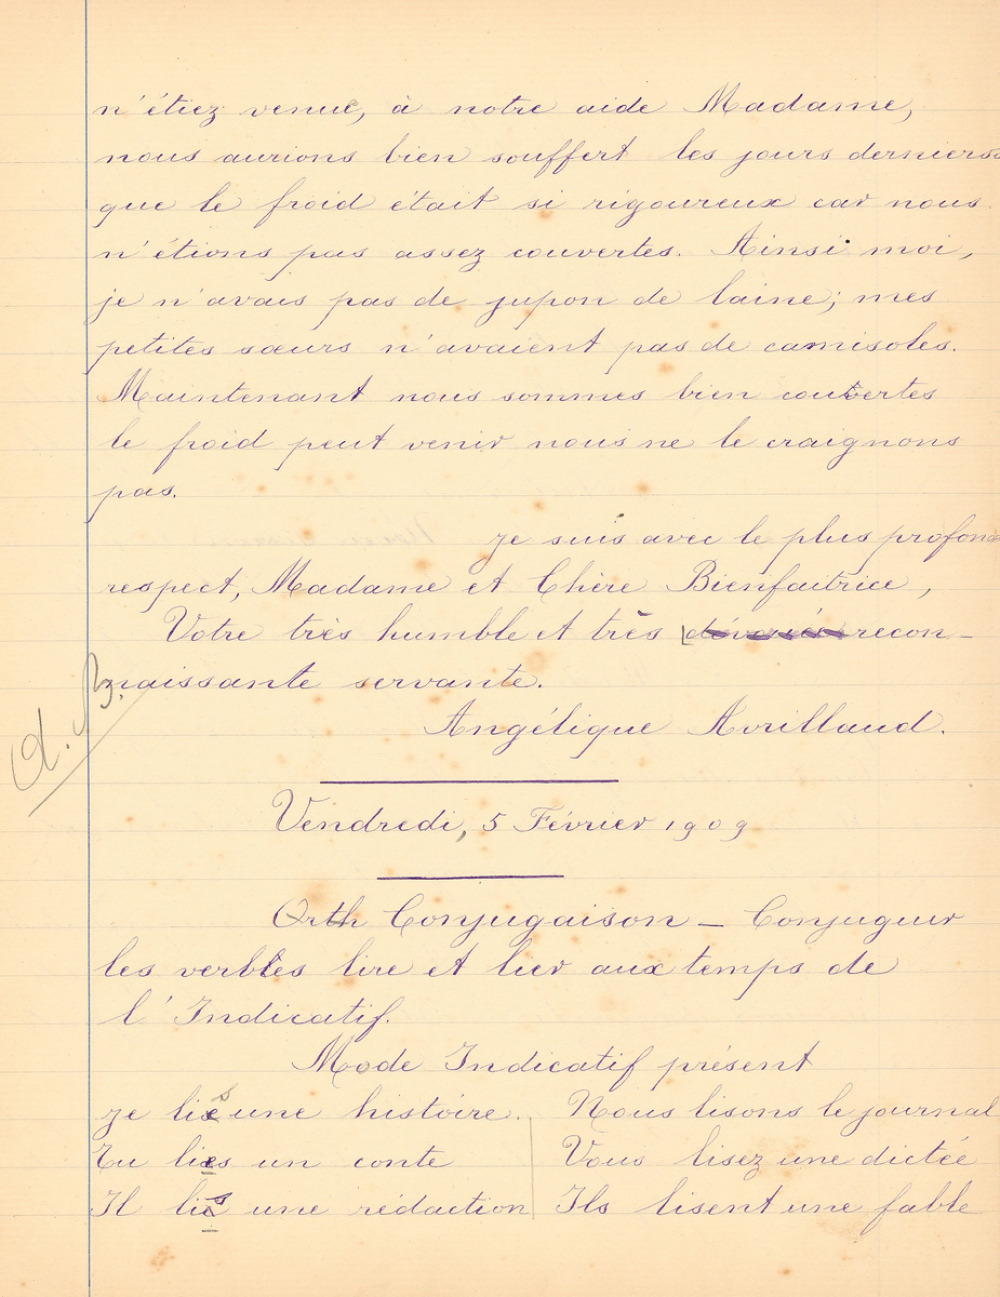 n'étiez venue, à notre aide Madame,
nous aurions bien souffert les jours derniers
que le froid était si rigoureux car nous
n'étions pas assez couvertes. Ainsi moi,
je n'avais pas de jupon de laine; mes
petites sœurs n'avaient pas de camisoles.
Maintenant nous sommes bien couvertes
le froid peut venir nous ne le craignons
pas.
Je suis avec le plus profond
respect, Madame et Chère Bienfaitrice,
Votre très humble et très recon-
naissante servante.
a. B.
Angélique Avrillaud.
Vendredi, 5 Février 1909
Orth Conjugaison – Conjuguer
les verbes lire et lier aux temps de
l'Indicatif.
Mode Indicatif présent
Je lis une histoire. Nous lisons le journal
Tu lies un conte Vous lisez une dictée
Il lis une rédaction Ils lisent une fable